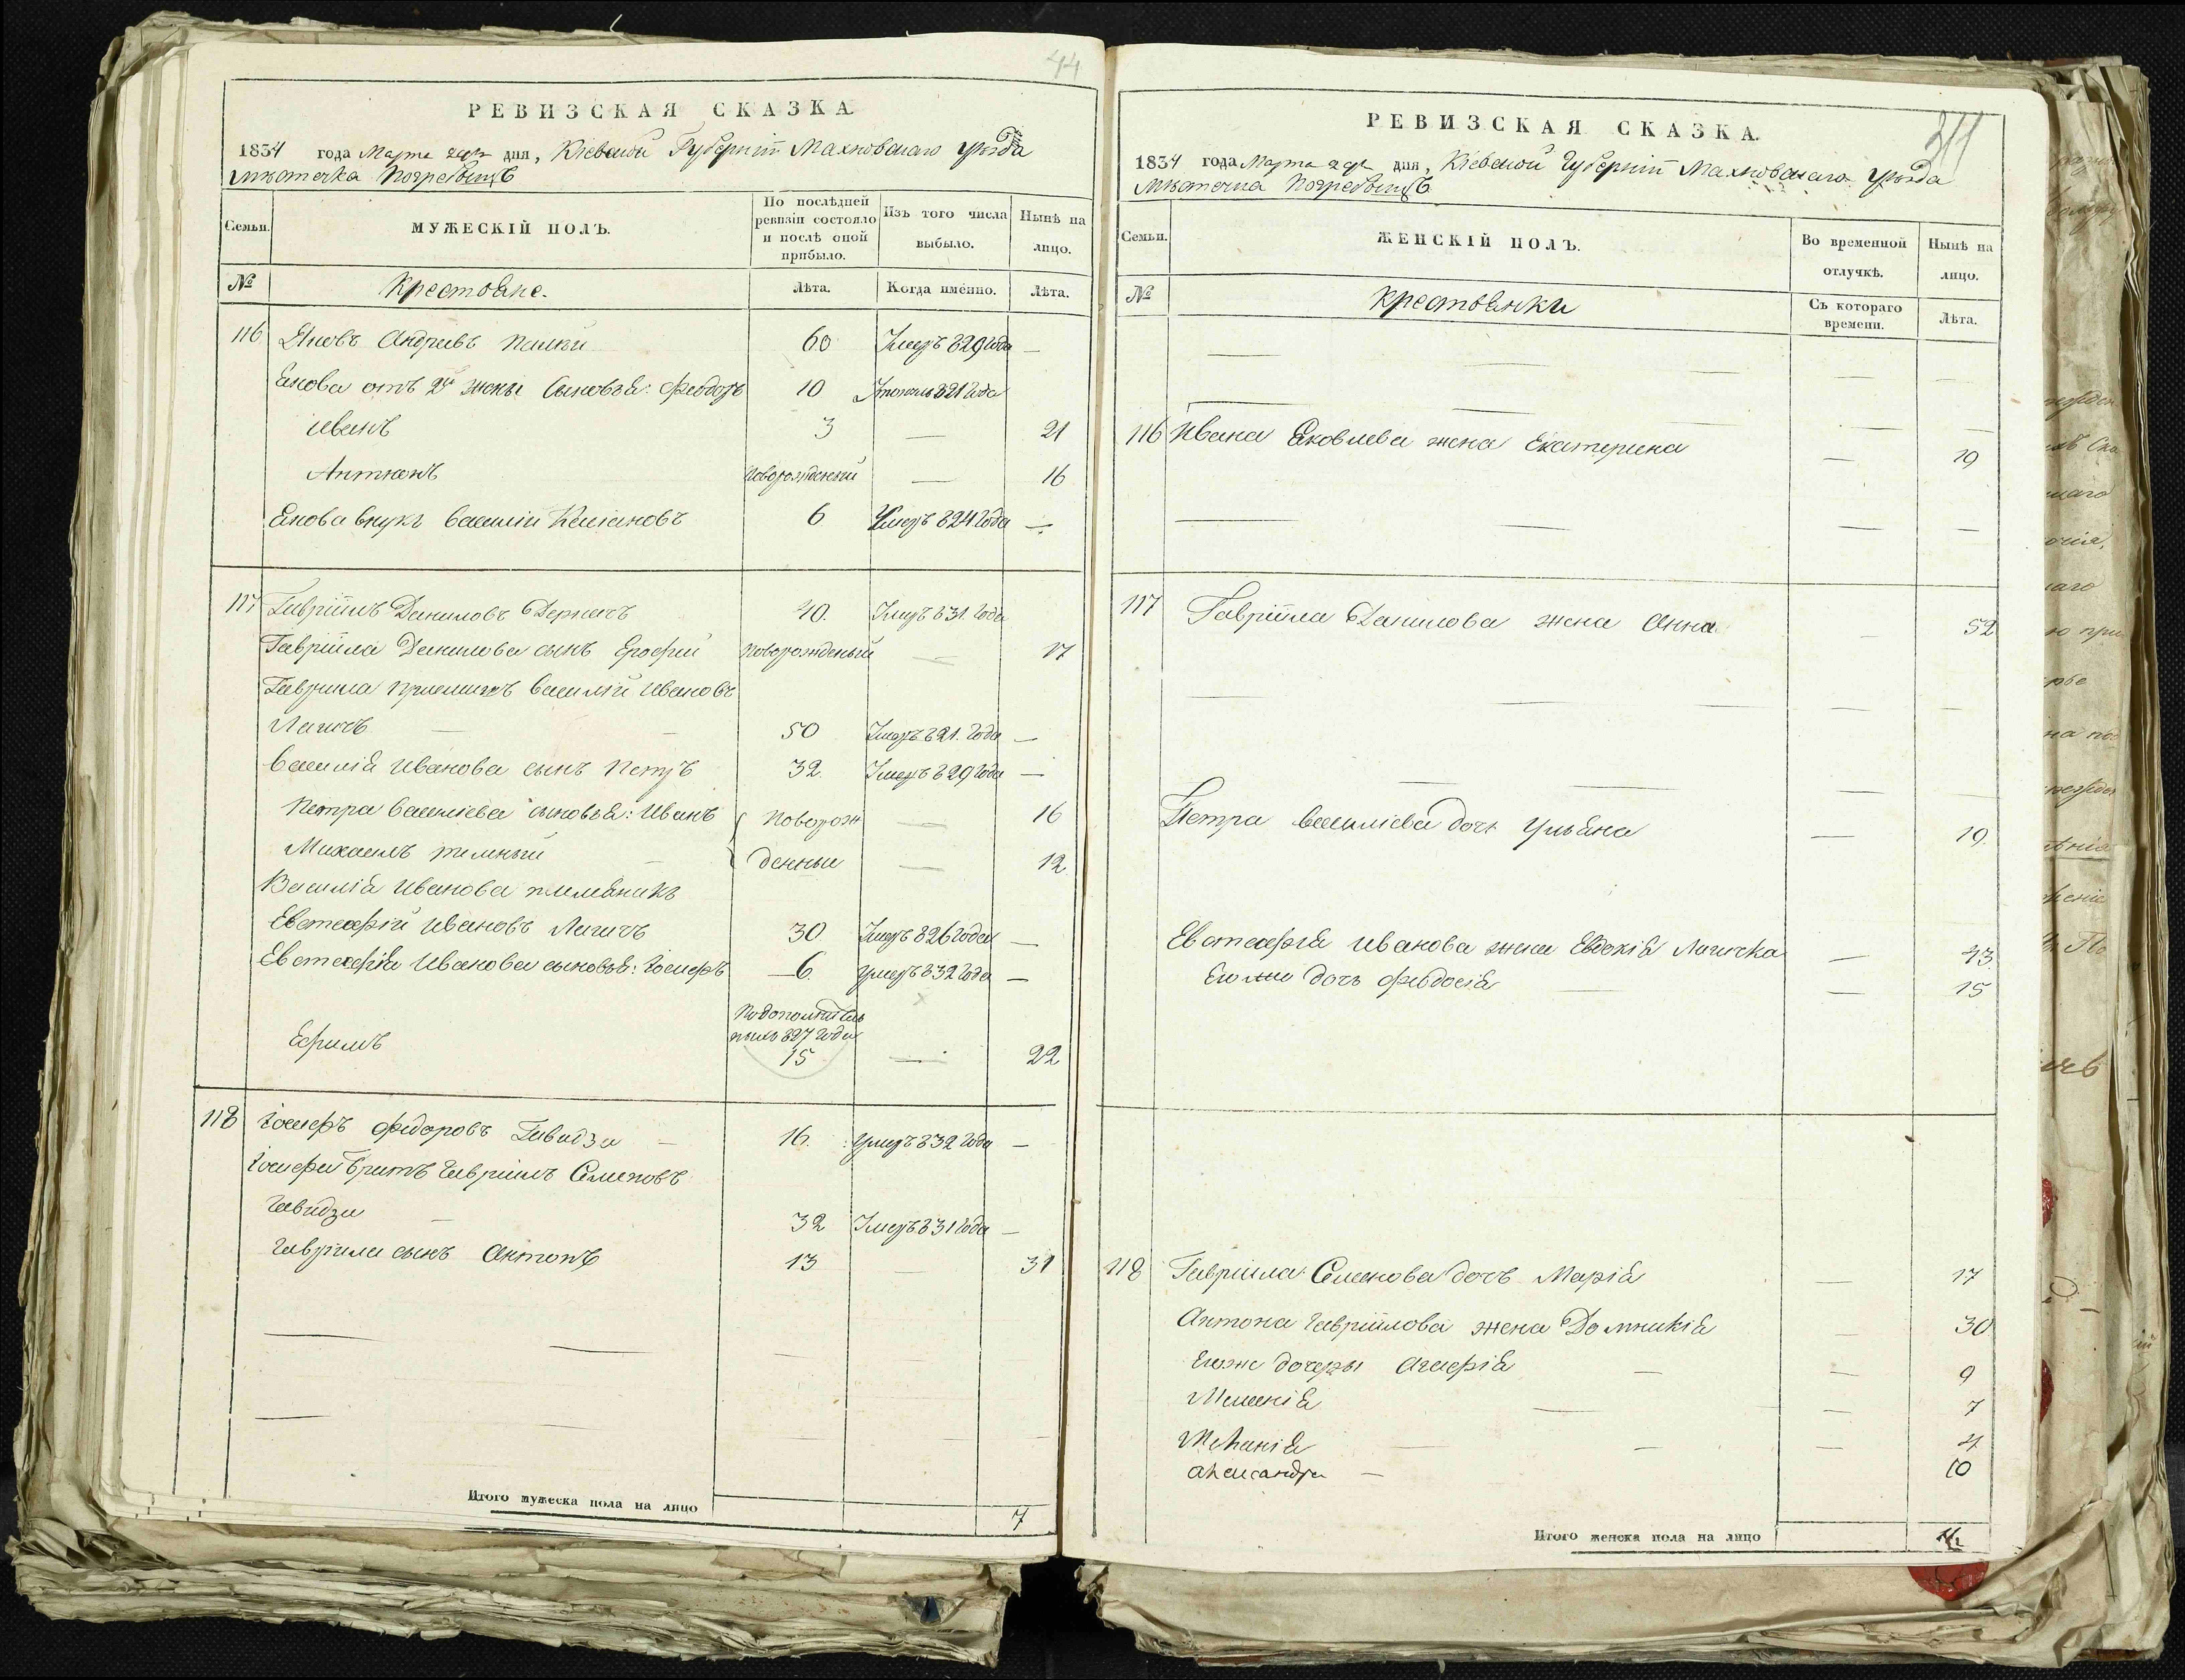 44
РЕВИЗСКАЯ СКАЗКА
1834 года Марта дня, Кіевской Губерніи Махновскаго уѣзда
мѣстечка Погребыщъ
Семьи.
МУЖЕСКІЙ ПОЛЪ.
По послѣдней ревизіи состояло и послѣ оной прибыло.
Изъ того числа выбыло.
Нынѣ на лицо.
№ Крестьяне. Лѣта. Когда именно. Лѣта.
116 Яковъ Андреевъ 60 Умеръ 829 года —
Якова отъ 2й жены сыновья: Феодоръ 10 821 года
Иванъ 3 — 21
Антионъ Новорожденный — 16
Якова внукъ Василій Касіановъ 6 Умеръ 824 года —
117 Гавріилъ Даниловъ Деркачъ 40. Умеръ 831 года
Гавріила Данилова сынъ Ерофей новорожденый — 17
Гаврила приемышъ Василій Ивановъ
Лагичъ — — 50 Умеръ 821. года —
Василія Иванова сынъ Петръ 32. Умеръ 829 года —
Петра Василіева сыновья: Иванъ Поворож — 16
Михаилъ темный — денные — 12
Василія Иванова племяникъ
Евстафій Ивановъ Лагичъ 30 Умеръ 826 года —
Евстафія Иванова сыновья: Іосифъ 6. умеръ 832 года —
Ефимъ 827 года 15 — 22
118 Іосифъ Федоровъ Гавидзи — 16. умеръ 832 года —
Іосифа братъ Гавріилъ Семеновъ
Гавидзи — 32 Умеръ 831 года —
Гавріила сынъ Антонъ 13 — 31
Итого мужеска пола на лицо 7
РЕВИЗСКАЯ СКАЗКА.
1834 года Марта дня, Кіевской Губерніи Махновскаго уѣзда
мѣстечка Погребыщъ
Семьи.
ЖЕНСКІЙ ПОЛЪ.
Во временной отлучкѣ.
Нынѣ на лицо.
№ Крестьянки Съ котораго времени. Лѣта.
116 Ивана Яковлева жена Екатерина — 19
117 Гавріила Данилова жена Анна — 52
Петра Василіева дочь Ульяна — 19.
Евстафія Иванова жена Евдокія Лагичка — 43.
Его же дочь Феодосія — — 15
118 Гавріила Семенова дочь Марія — 17
Антона Гавріилова жена Домникія — 30
Его же дочеры Агафія — — 9
Меланія — — 7
— — — 4
Александра — 10
Итого женска пола на лицо